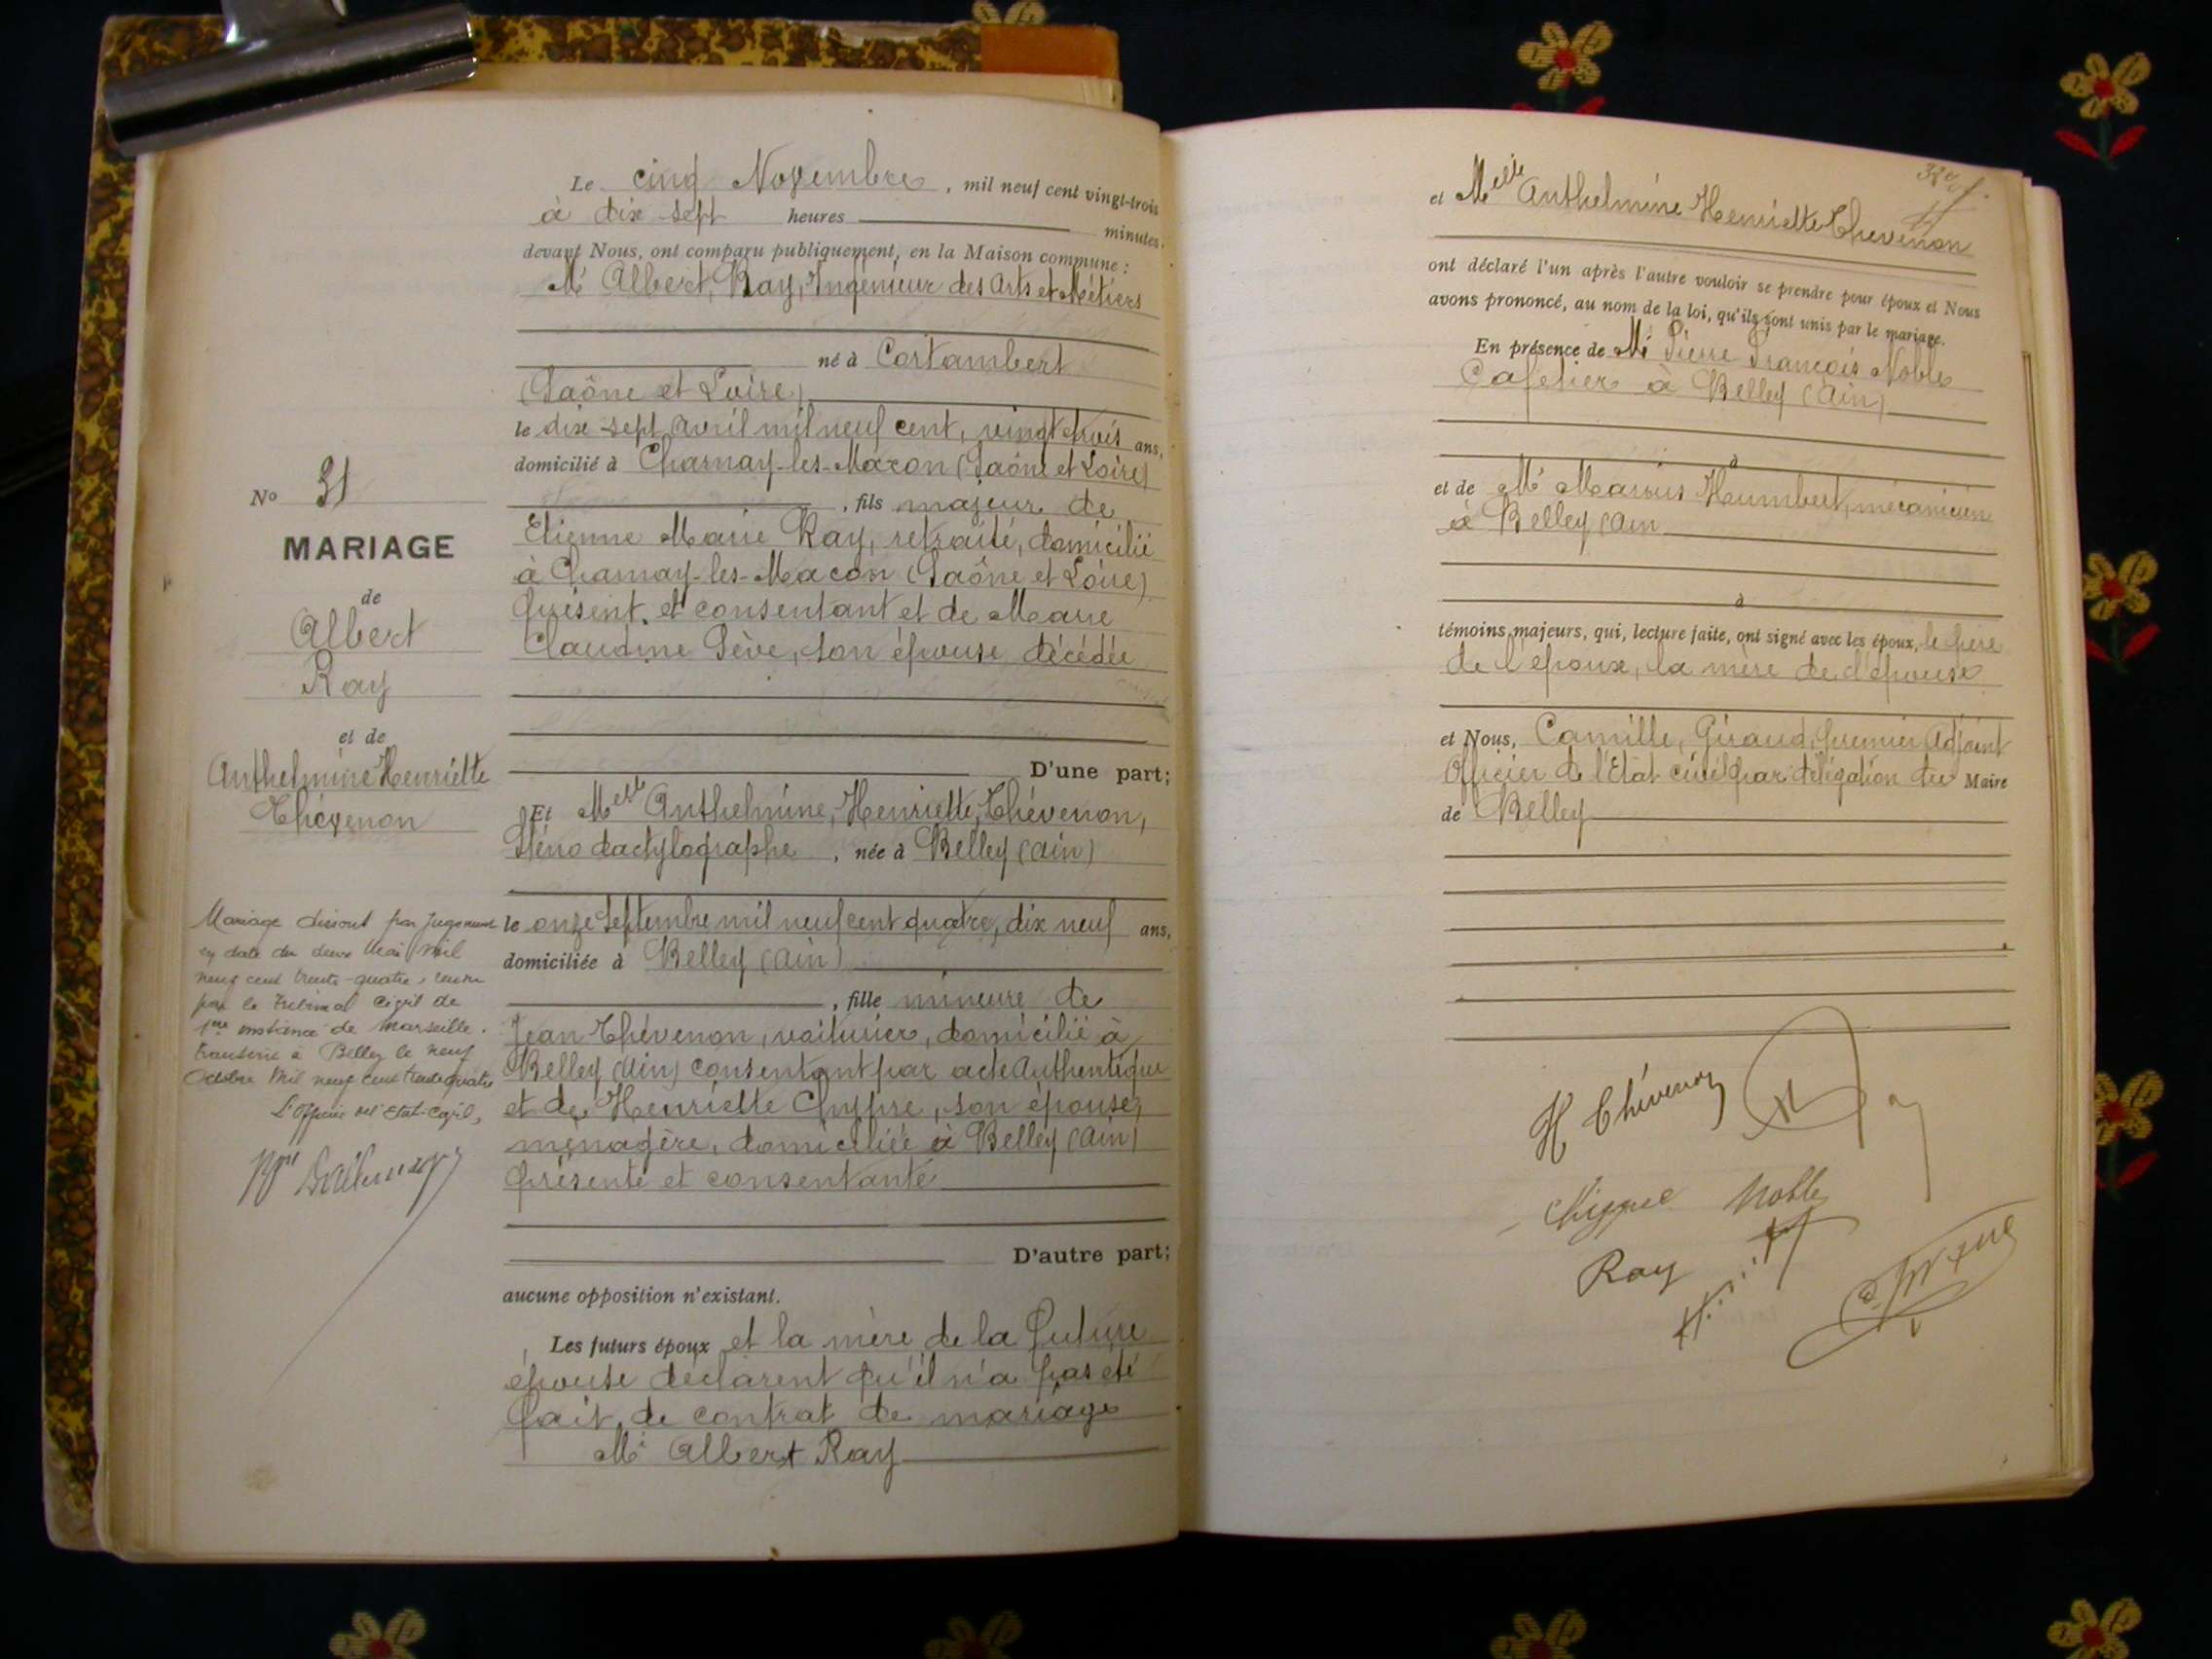 No 31
MARIAGE
de
Albert
Ray
et de
Anthelmine Henriette
Thévenon
Mariage dissout par jugement
en date du deux Mai mil
neuf cent trente-quatre, rendu
par le Tribunal Civil de
1ère instance de Marseille.
transcrit à Belley le neuf
Octobre mil neuf cent trente quatre
L'Officier de l'Etat-Civil,
Le cinq Novembre, mil neuf cent vingt-trois
à dix sept heures minutes.
devant Nous, ont comparu publiquement, en la Maison commune :
Mr Albert, Ray, Ingénieur des Arts et Métiers
né à Cortambert
(Saône et Loire)
le dix-sept avril mil neuf cent, vingt trois ans,
domicilié à Charnay-les-Macon (Saône et Loire)
, fils majeur de
Etienne Marie Ray, retraité, domicilié
à Charnay-les-Macon (Saône et Loire)
présent et consentant et de Marie
Claudine Sève, son épouse décédée
D'une part;
Et Melle Anthelmine, Henriette, Thévenon,
Sténo dactylographe, née à Belley (Ain)
le onze Septembre mil neuf cent quatre, dix neuf ans,
domiciliée à Belley (Ain)
, fille mineure de
Jean Thévenon, voiturier, domicilié à
Belley (Ain) consentant par acte Authentique
et de Henriette Chyppre, son épouse,
ménagère, domiciliée à Belley (Ain)
présente et consentante
D'autre part;
aucune opposition n'existant.
Les futurs époux et la mère de la future
épouse déclarent qu'il n'a pas été
fait de contrat de mariage
Mr Albert Ray
et Melle Anthelmine Henriette Thévenon
ont déclaré l'un après l'autre vouloir se prendre pour époux et Nous
avons prononcé, au nom de la loi, qu'ils sont unis par le mariage.
En présence de Mr Pierre François Noble
Cafetier à Belley (Ain)
à
et de Mr Marius Humbert, mécanicien
à Belley (Ain
à
témoins majeurs, qui, lecture faite, ont signé avec les époux, le père
de l'époux, la mère de l'épouse
et Nous, Camille, Giraud, premier Adjoint
Officier de l'Etat civil par délégation du Maire
de Belley
H Thévenon
Ray
Noble
Ray